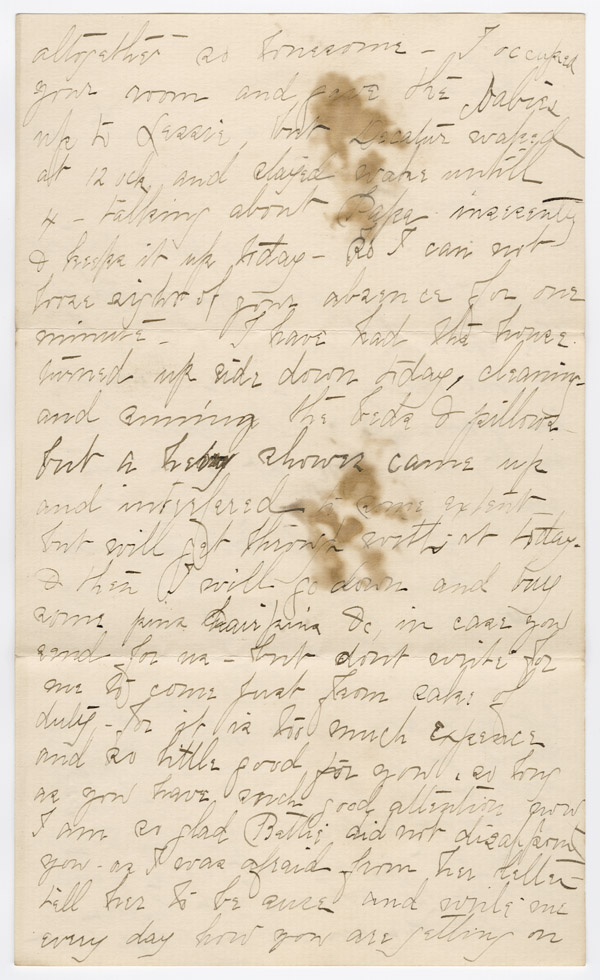 altogether so lonesome - I occupied
your room and gave the babies
up to Lessie, but Decatur waked
at 12 ock and stayed wake untill
4 - talking about Papa insesently
& keeps it up today - So I can not
loose sight of your absence for one
minute - I have had the house
turned up side down today, cleaning
and sunning the beds & pillows -
but a heavy shower came up
and interfered to some extent
but will get through with it today -
& then I will go down and buy
some pins hairpins &c in case you
send for us - but dont write for
me to come just from sake of
duty - for it is too much expence
and so little good for you, so long
as you have such good attention now
I am so glad Bettie did not disappoint
you - as I was afraid from her letter -
tell her to be sure and write me
every day how you are getting on